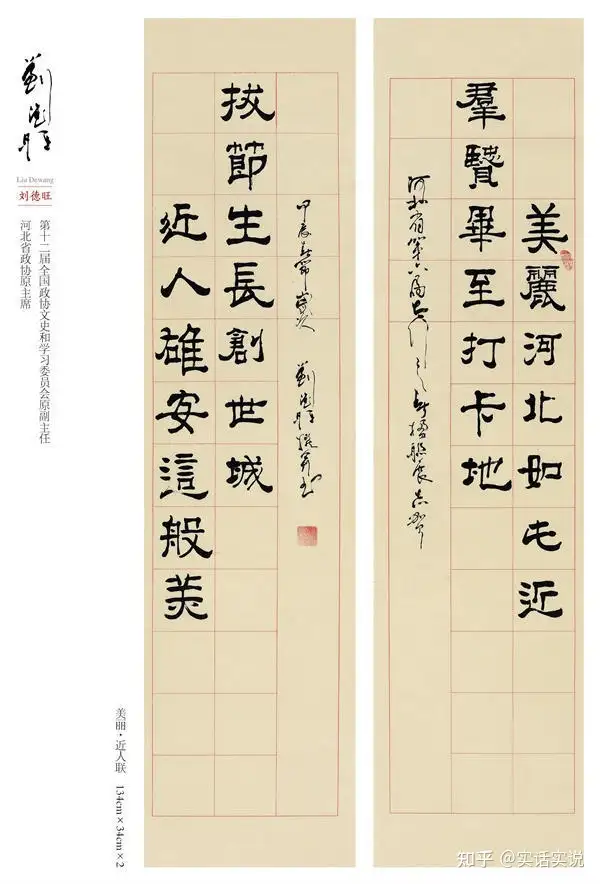 劉德旺
Liu Dewang
刘德旺
第十二届全国政协文史和学习委员会原副主任
河北省政协原主席
美麗河北如此近
羣賢畢至打卡地
河北省第六届 楹聯展志賀
近人雄安這般美
拔節生長創世城
甲辰春節 劉德旺撰并书
美丽·近人联 134cm×34cm×2
知乎 @实话实说